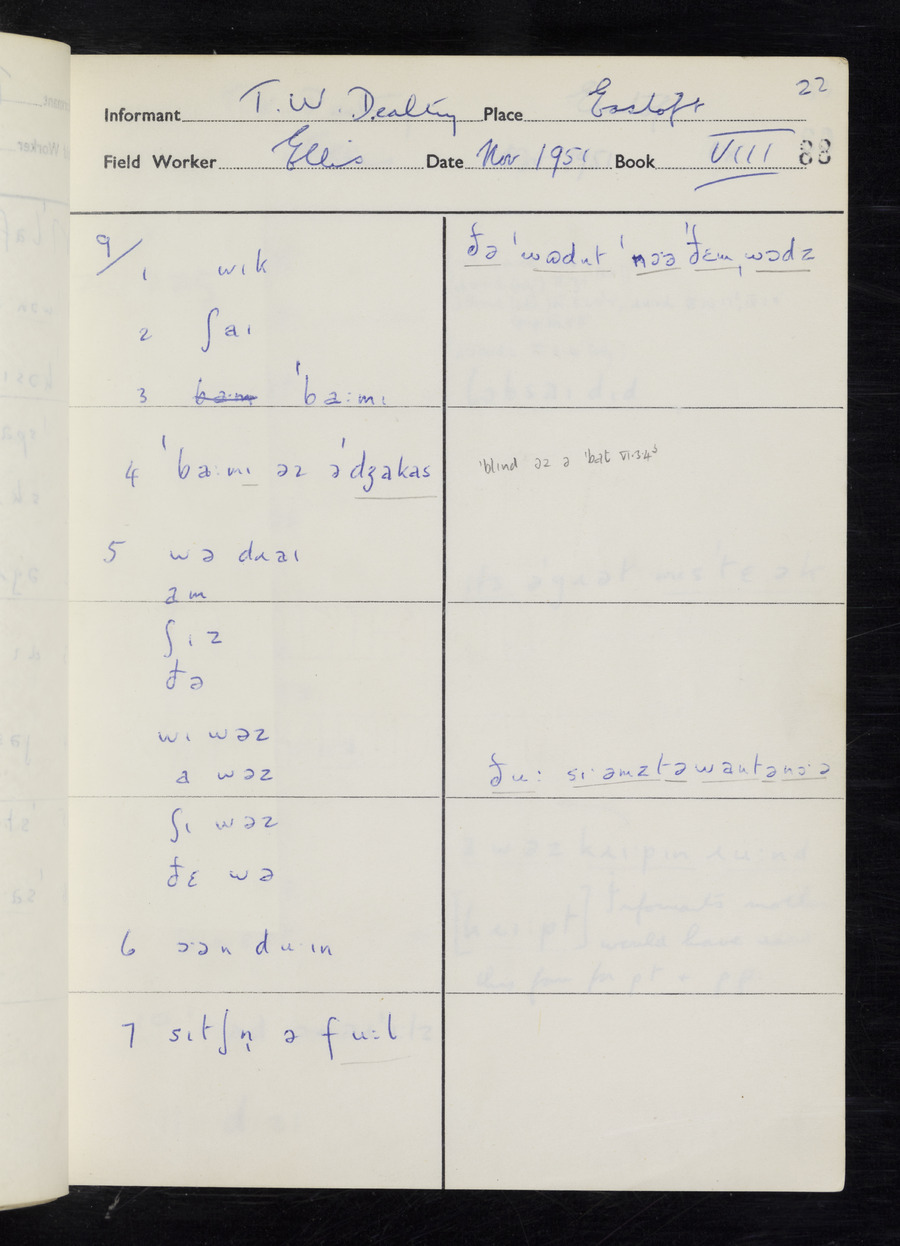 22
Informant T. W. Dealtry Place Eastoft
Field Worker Ellis Date Nov 1951 Book VIII 88
9/
1 wɪk
2 ʃaɪ
3 ba:m ˈba:mɪ
4 ˈba:mɪ əz əˈdʒakas
5 wə dɹaɪ
am
ʃɪz
ðə
wɪ wəz
a wəz
ʃɪ wəz
ðɛ wə
6 ɔ:ən du·ɪn
7 sɪtʃ n̩ ə fu:l
ðə ˈwədnt ˈnɔ:ə ˈðɛm ˌwɔdz
ˈblɪnd əz ə ˈbat VI.3.4³
ðu: sɪ·əmz tə want ə nɔ·ə